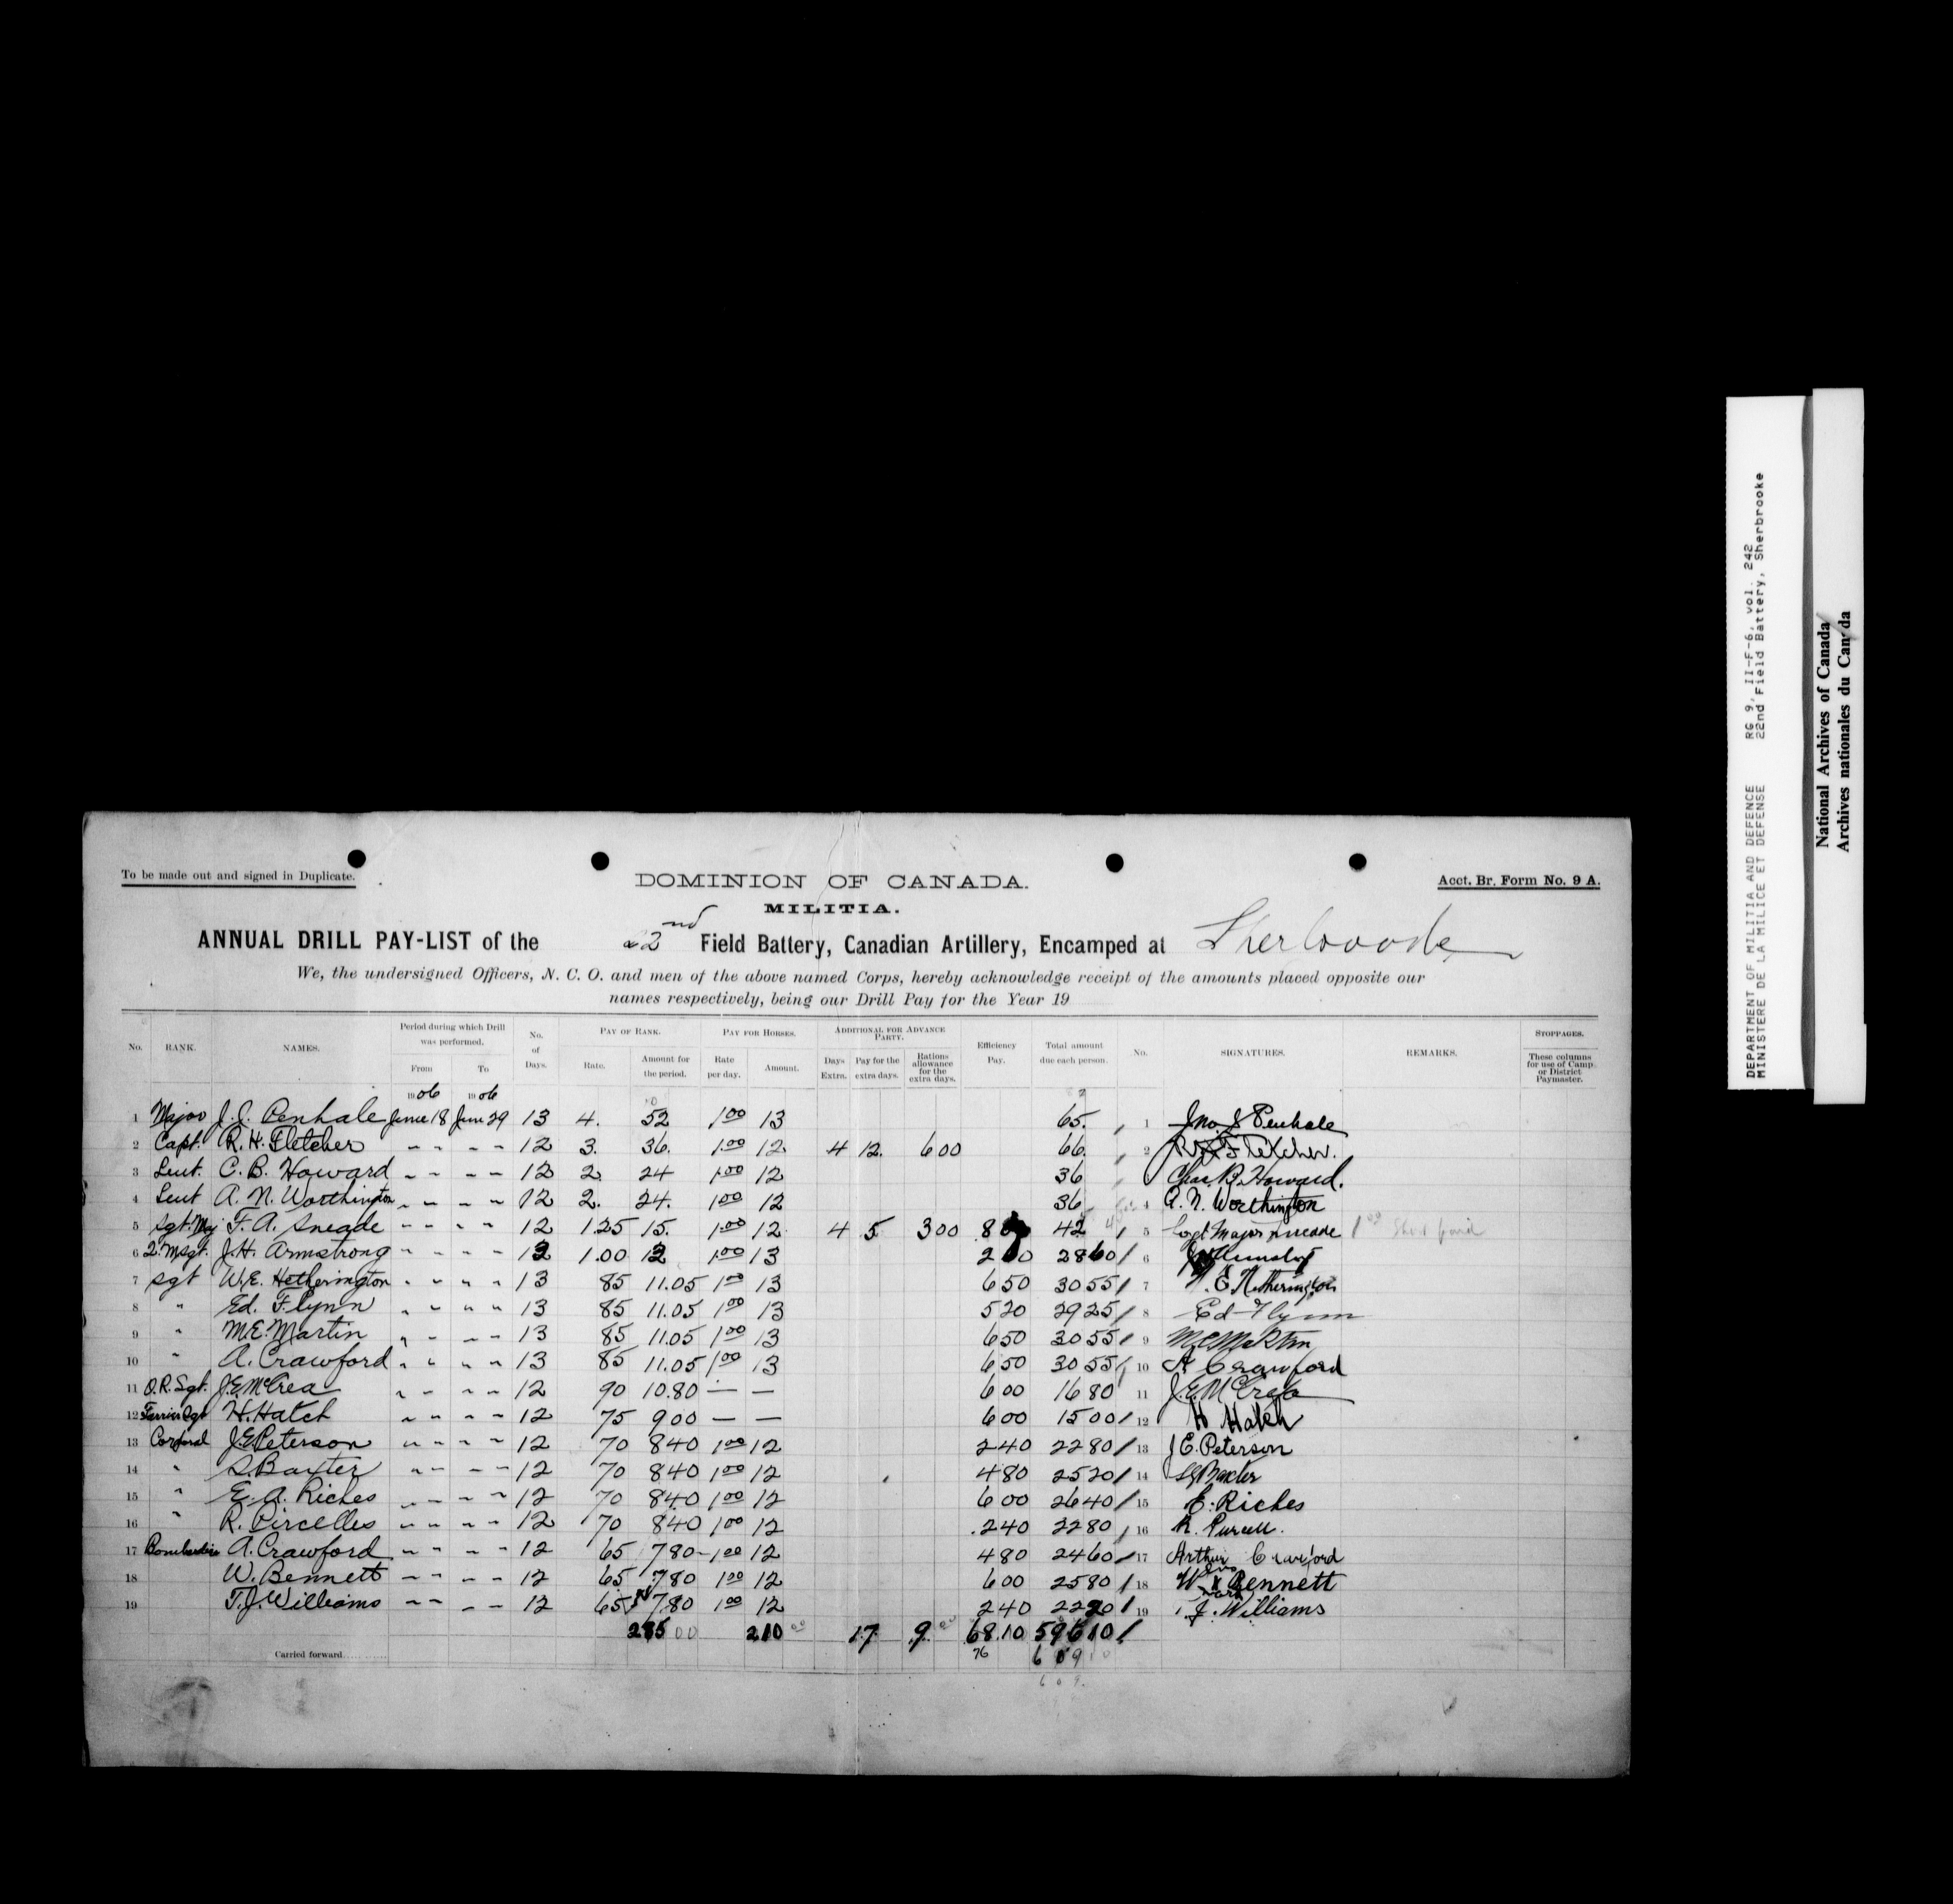 To be made out and signed in Duplicate.
DOMINION OF CANADA.
Acct. Br. Form No. 9 A.
MILITIA.
ANNUAL DRILL PAY-LIST of the 22nd Field Battery, Canadian Artillery, Encamped at Sherbrooke
We, the undersigned Officers, N. C. O. and men of the above named Corps, hereby acknowledge receipt of the amounts placed opposite our
names respectively, being our Drill Pay for the Year 19
No. RANK. NAMES. Period during which Drill was performed. From To No. of Days. PAY OF RANK. Rate. Amount for the period. PAY FOR HORSES. Rate per day. Amount. ADDITIONAL FOR ADVANCE PARTY. Days Extra. Pay for the extra days. Rations allowance for the extra days. Efficiency Pay. Total amount due each person. No. SIGNATURES. REMARKS. STOPPAGES. These columns for use of Camp or District Paymaster.
1906 1906
1 Major J. J. Penhale June 18 June 29 13 4. 52 1.00 13 65. 1 Jno. J Penhale
2 Capt. R. H. Fletcher " " " " 12 3. 36. 1.00 12. 4 12. 6 00 66. 2 R H Fletcher.
3 Leut. C. B. Howard " " " " 12 2. 24 1.00 12 36 Chas. B. Howard.
4 Leut A. N. Worthington " " " " 12 2. 24. 1.00 12 36 4 A. N. Worthington
5 Sgt. Maj F. A. Sneade " " " " 12 1.25 15. 1.00 12. 4 5 3 00 42 5 Sgt Major Sneade 1.00 Short paid
6 Q. M Sgt. J. H. Armstrong " " " " 1.00 12 1.00 13 28 60 6
7 Sgt W. E. Hetherington " " " " 13 85 11.05 1.00 13 6 50 30 55 7 W. E Hetherington
8 " Ed. Flynn " " " " 13 85 11.05 1.00 13 5 20 29 25 8 Ed Flynn
9 " M. E. Martin " " " " 13 85 11.05 1.00 13 6 50 30 55 9 M E Martin
10 " A. Crawford " " " " 13 85 11.05 1.00 13 6 50 30 55 10 A Crawford
11 O. R. Sgt. J. E. McCrea " " " " 12 90 10.80 — — 6 00 16 80 11 J. E. McCrea
12 Farrier Sgt H. Hatch " " " " 12 75 9 00 — — 6 00 15 00 12 H Hatch
13 Corporal J. E. Peterson " " " " 12 70 8 40 1.00 12 2 40 22 80 13 J E. Peterson
14 " S. Baxter " " " " 12 70 8 40 1.00 12 4 80 25 20 14 S Baxter
15 " E. A. Riches " " " " 12 70 8 40 1.00 12 6 00 26 40 15 E. Riches
16 " R. Pircelles " " " " 12 70 8 40 1.00 12 2 40 22 80 16 R. Purcell.
17 Bombardier A. Crawford " " " " 12 65 7 80 1.00 12 4 80 24 60 17 Arthur Crawford
18 W. Bennett " " " " 12 65 7 80 1.00 12 6 00 25 80 18 W his x mark Bennett
19 T. J. Williams " " " " 12 65 7 80 1.00 12 2 40 22 20 19 T. J. Williams
285 00 210 00 17. 9.00 68.10 596 10
Carried forward 76 609 10
609.
DEPARTMENT OF MILITIA AND DEFENCE RG 9, II-F-6, vol. 242
MINISTERE DE LA MILICE ET DEFENSE 22nd Field Battery, Sherbrooke
National Archives of Canada
Archives nationales du Canada